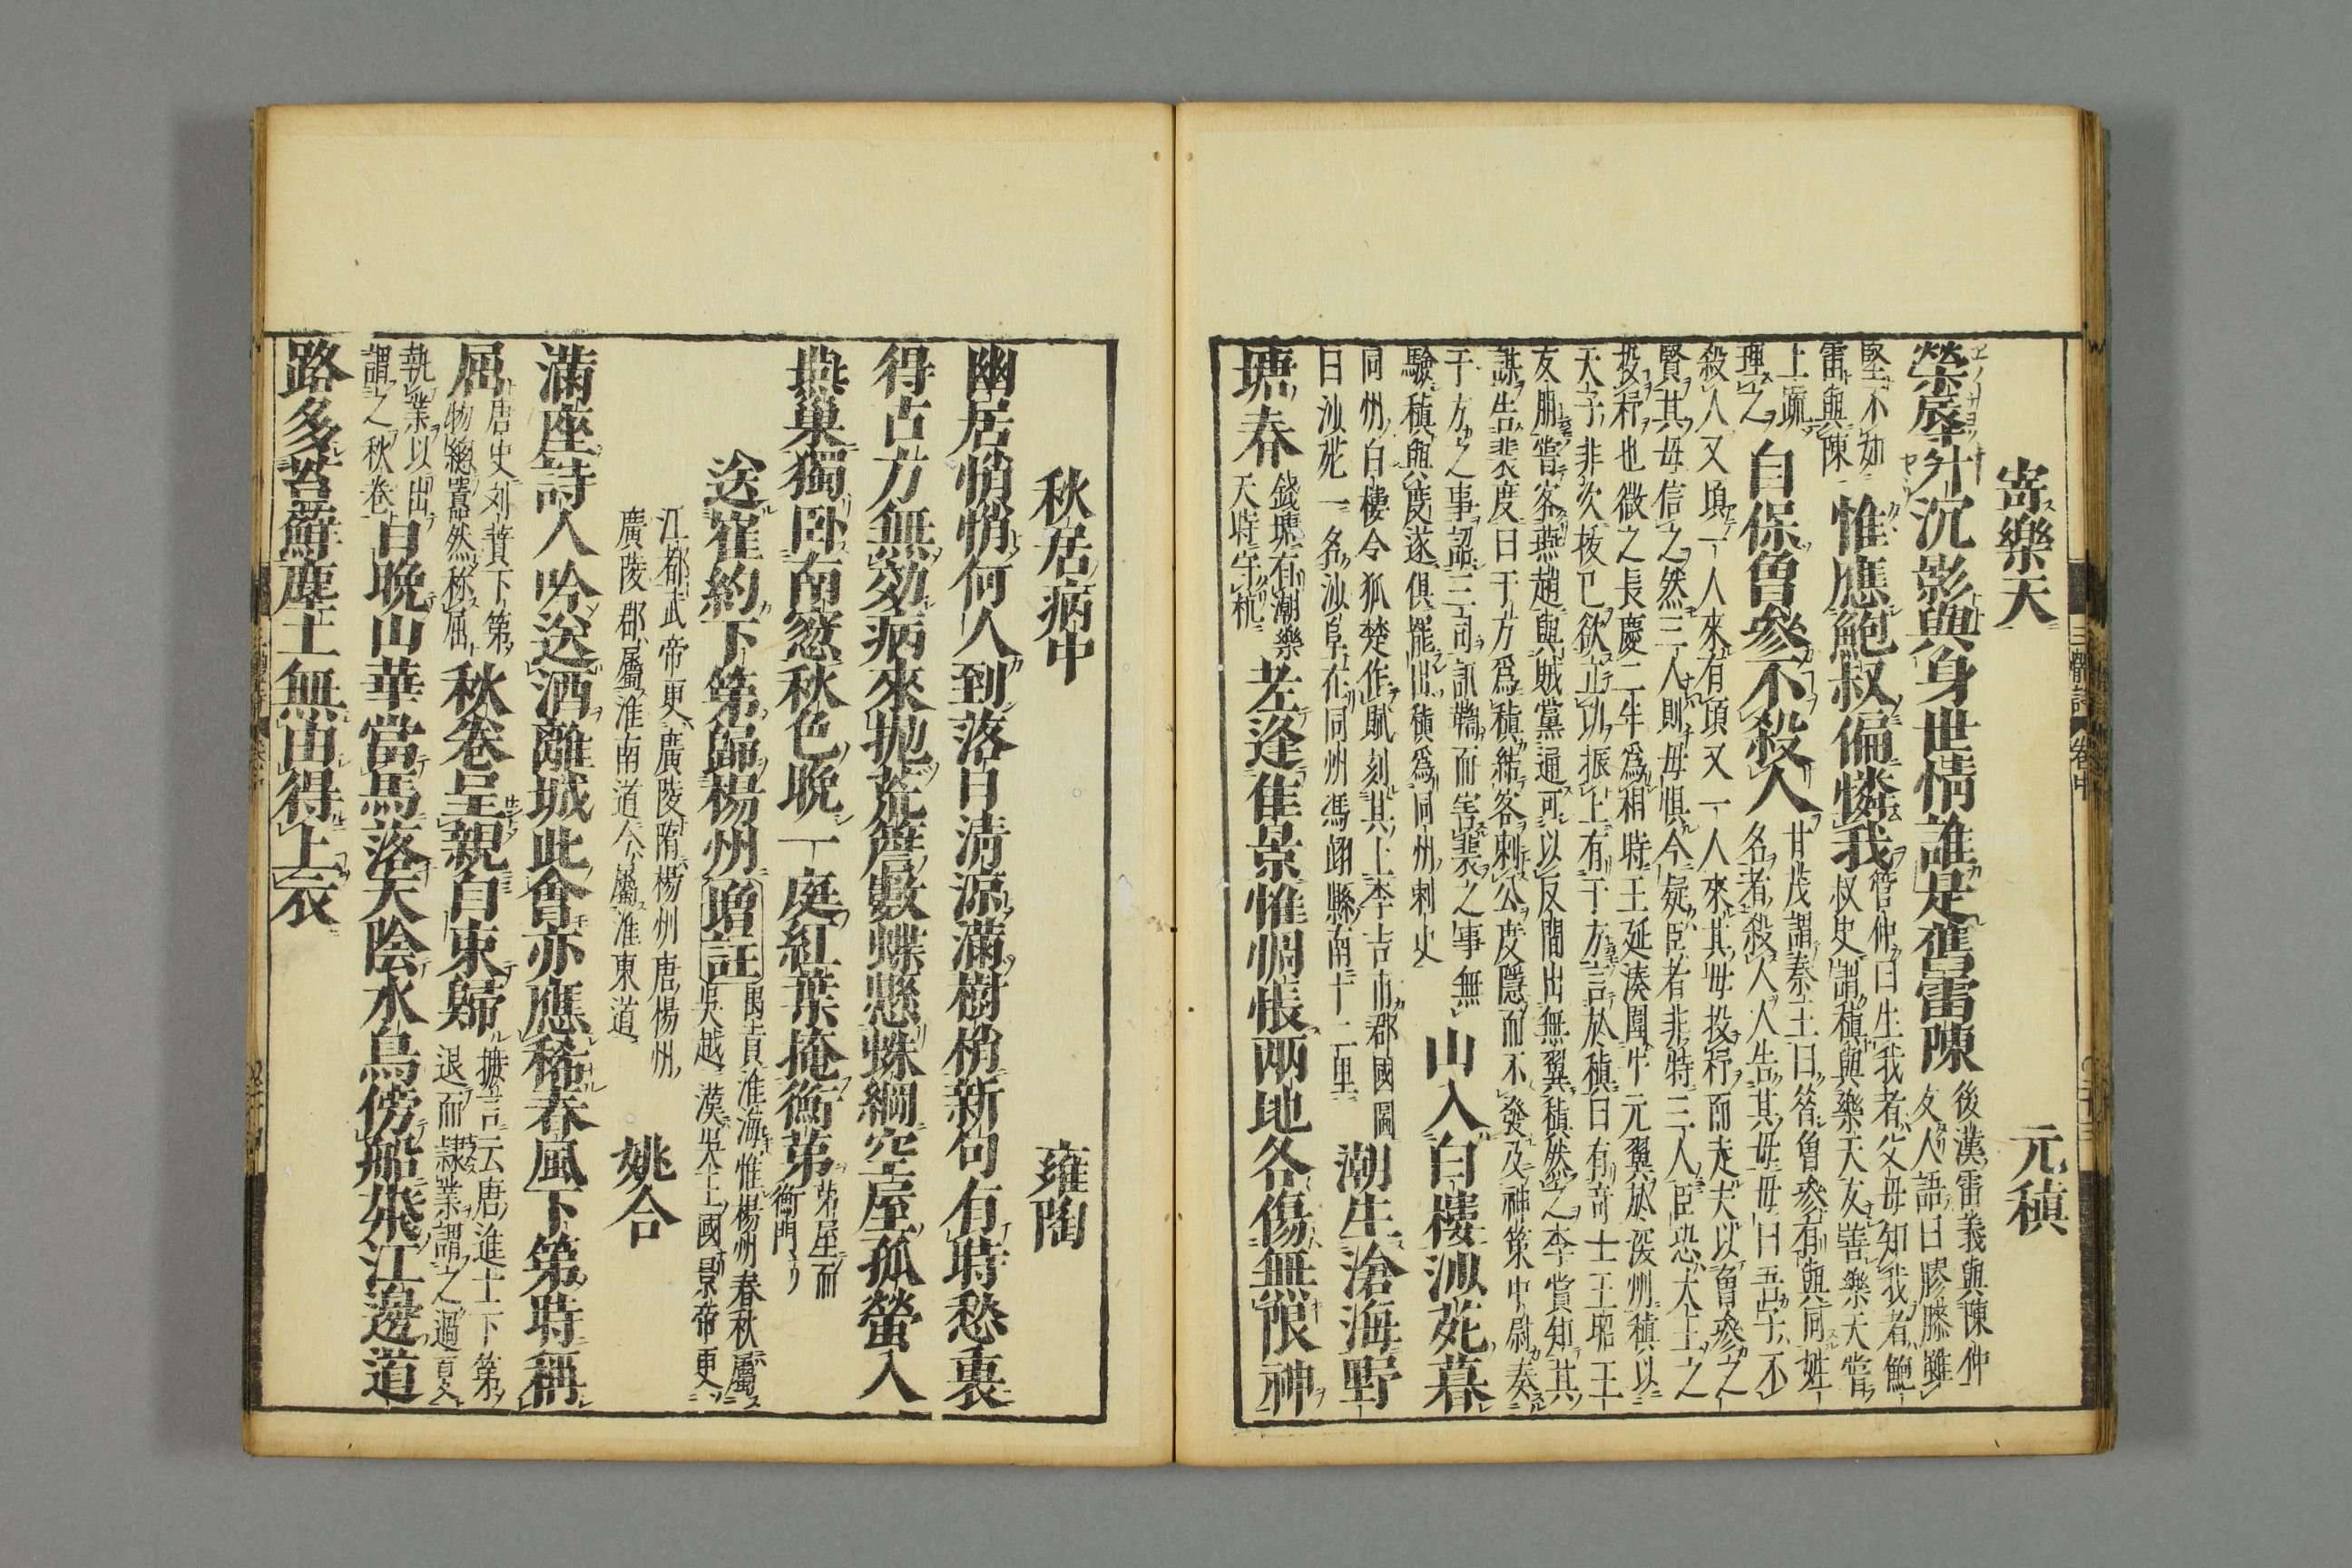 寄樂天　元稹
榮辱升沉影與身世情誰是舊雷陳後漢雷義與陳仲友人語曰膠膝雖
堅不如雷與陳惟應鮑叔偏憐我管仲曰生我者父毋知我者鮑叔史謂稹與樂天友善樂天嘗
上疏理之自保曾參不殺人甘茂謂秦王曰答魯參有與同姓名者殺人人告其毋毋曰吾子不
殺人又頃一人來有頃又一人來其毋投杼而走夫以曾參之
賢其毋信之然三人則毋惧今疑臣者非特三人臣恐大王之
投杼也微之長慶二年為相時王延湊圍牛元翼於深州稹以
天子非次拔已欲立功振上有于方言於稹曰有奇士王昭王
友朋嘗客燕趙與賊黨通可以反間出無翼稹然之李賞知其
謀告裴度曰于方為稹結客刺公度隱而不發及神策中尉奏
于方之事詔三司訊鞫而害裴之事無
驗稹與度遂俱罷出稹為同州刺史山入白樓沙苑暮
同州白樓令狐楚作賦刻其上李吉甫郡國圖
曰沙苑一名沙阜在同州馮翊縣南十二里潮生滄海野
塘春錢塘有潮樂天時守杭老逢佳景惟惆悵兩地各傷無限神
三體詩　卷中
秋居病中　雍陶
幽居悄悄何人到落日清涼滿樹梢新句有時愁裏
得古方無效病來抛荒簷數蝶懸蛛網空屋孤螢入
燕巢獨卧南窓秋色晩一庭紅葉掩衡茅茅屋而衡門
送崔約下第歸楊州增註禹貢淮海惟楊州春秋屬吳越漢吳王國景帝更
江都武帝更廣陵隋楊州唐楊州
廣陵郡屬淮南道今屬淮東道　姚合
滿座詩人吟送酒離城此會亦應稀春風下第時稱
屈唐史刘蕡下第物總囂然称屈秋卷呈親自束歸摭言云唐進士下第退而隷業謂之過夏
執業以出謂之秋卷白晩山華當馬落天陰水鳥傍船飛江邊道
路多苔蘚塵土無由得上衣